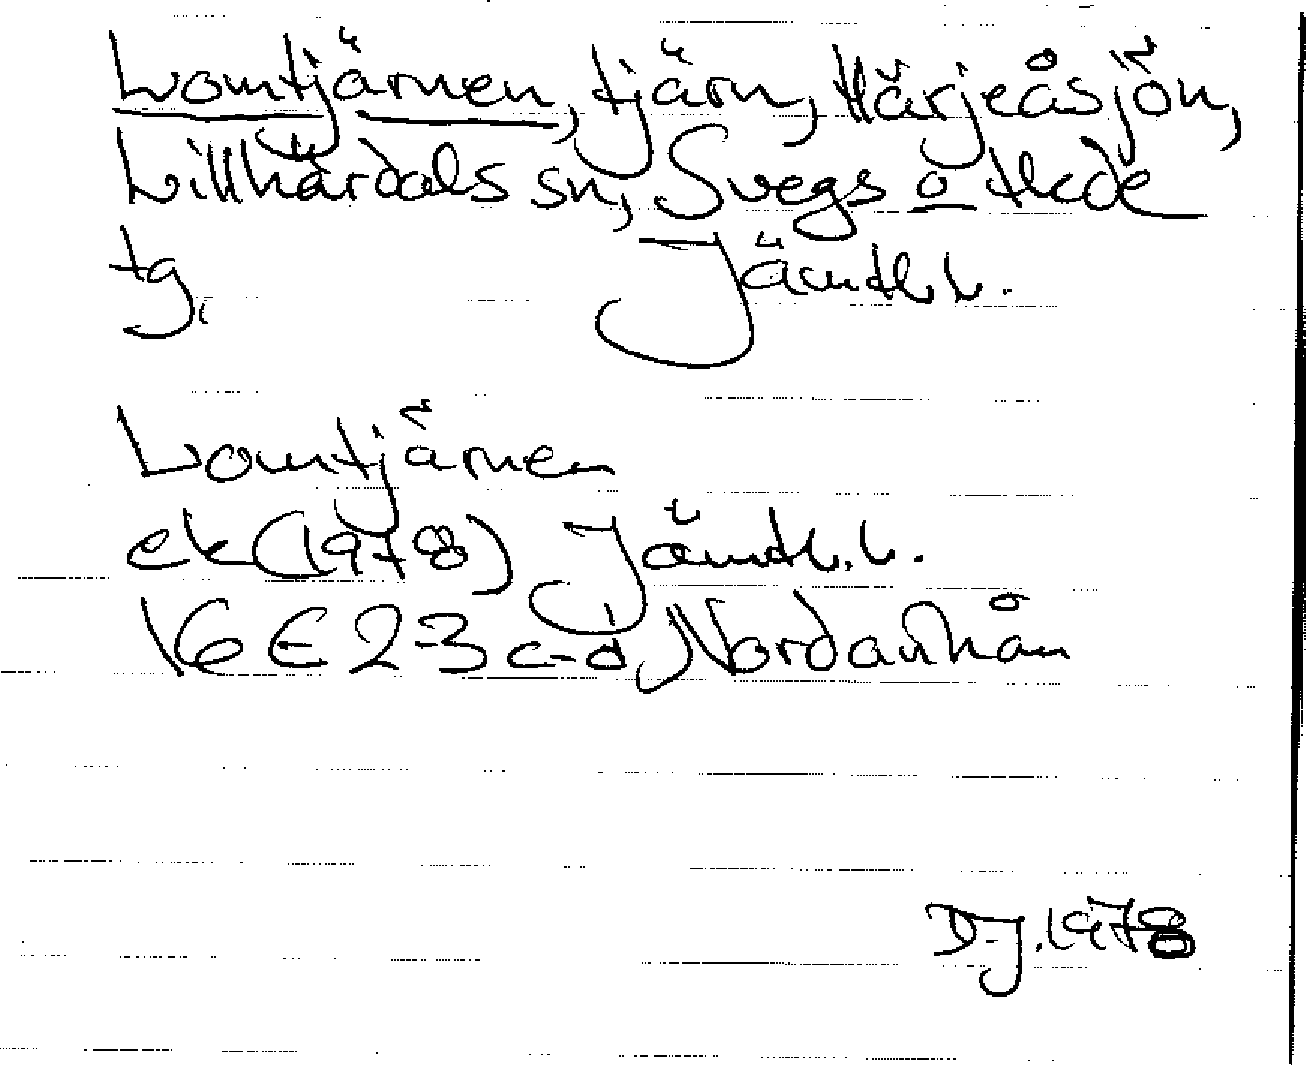 Lomtjärnen, tjärn, Härjeåsjön,
Lillhärdals sn, Svegs o Hede
tg, Jämtl. l.
Lomtjärnen
ek (1978) Jämtl. l.
16 E 2-3 c-d, Nordanhån
D-J. 1978